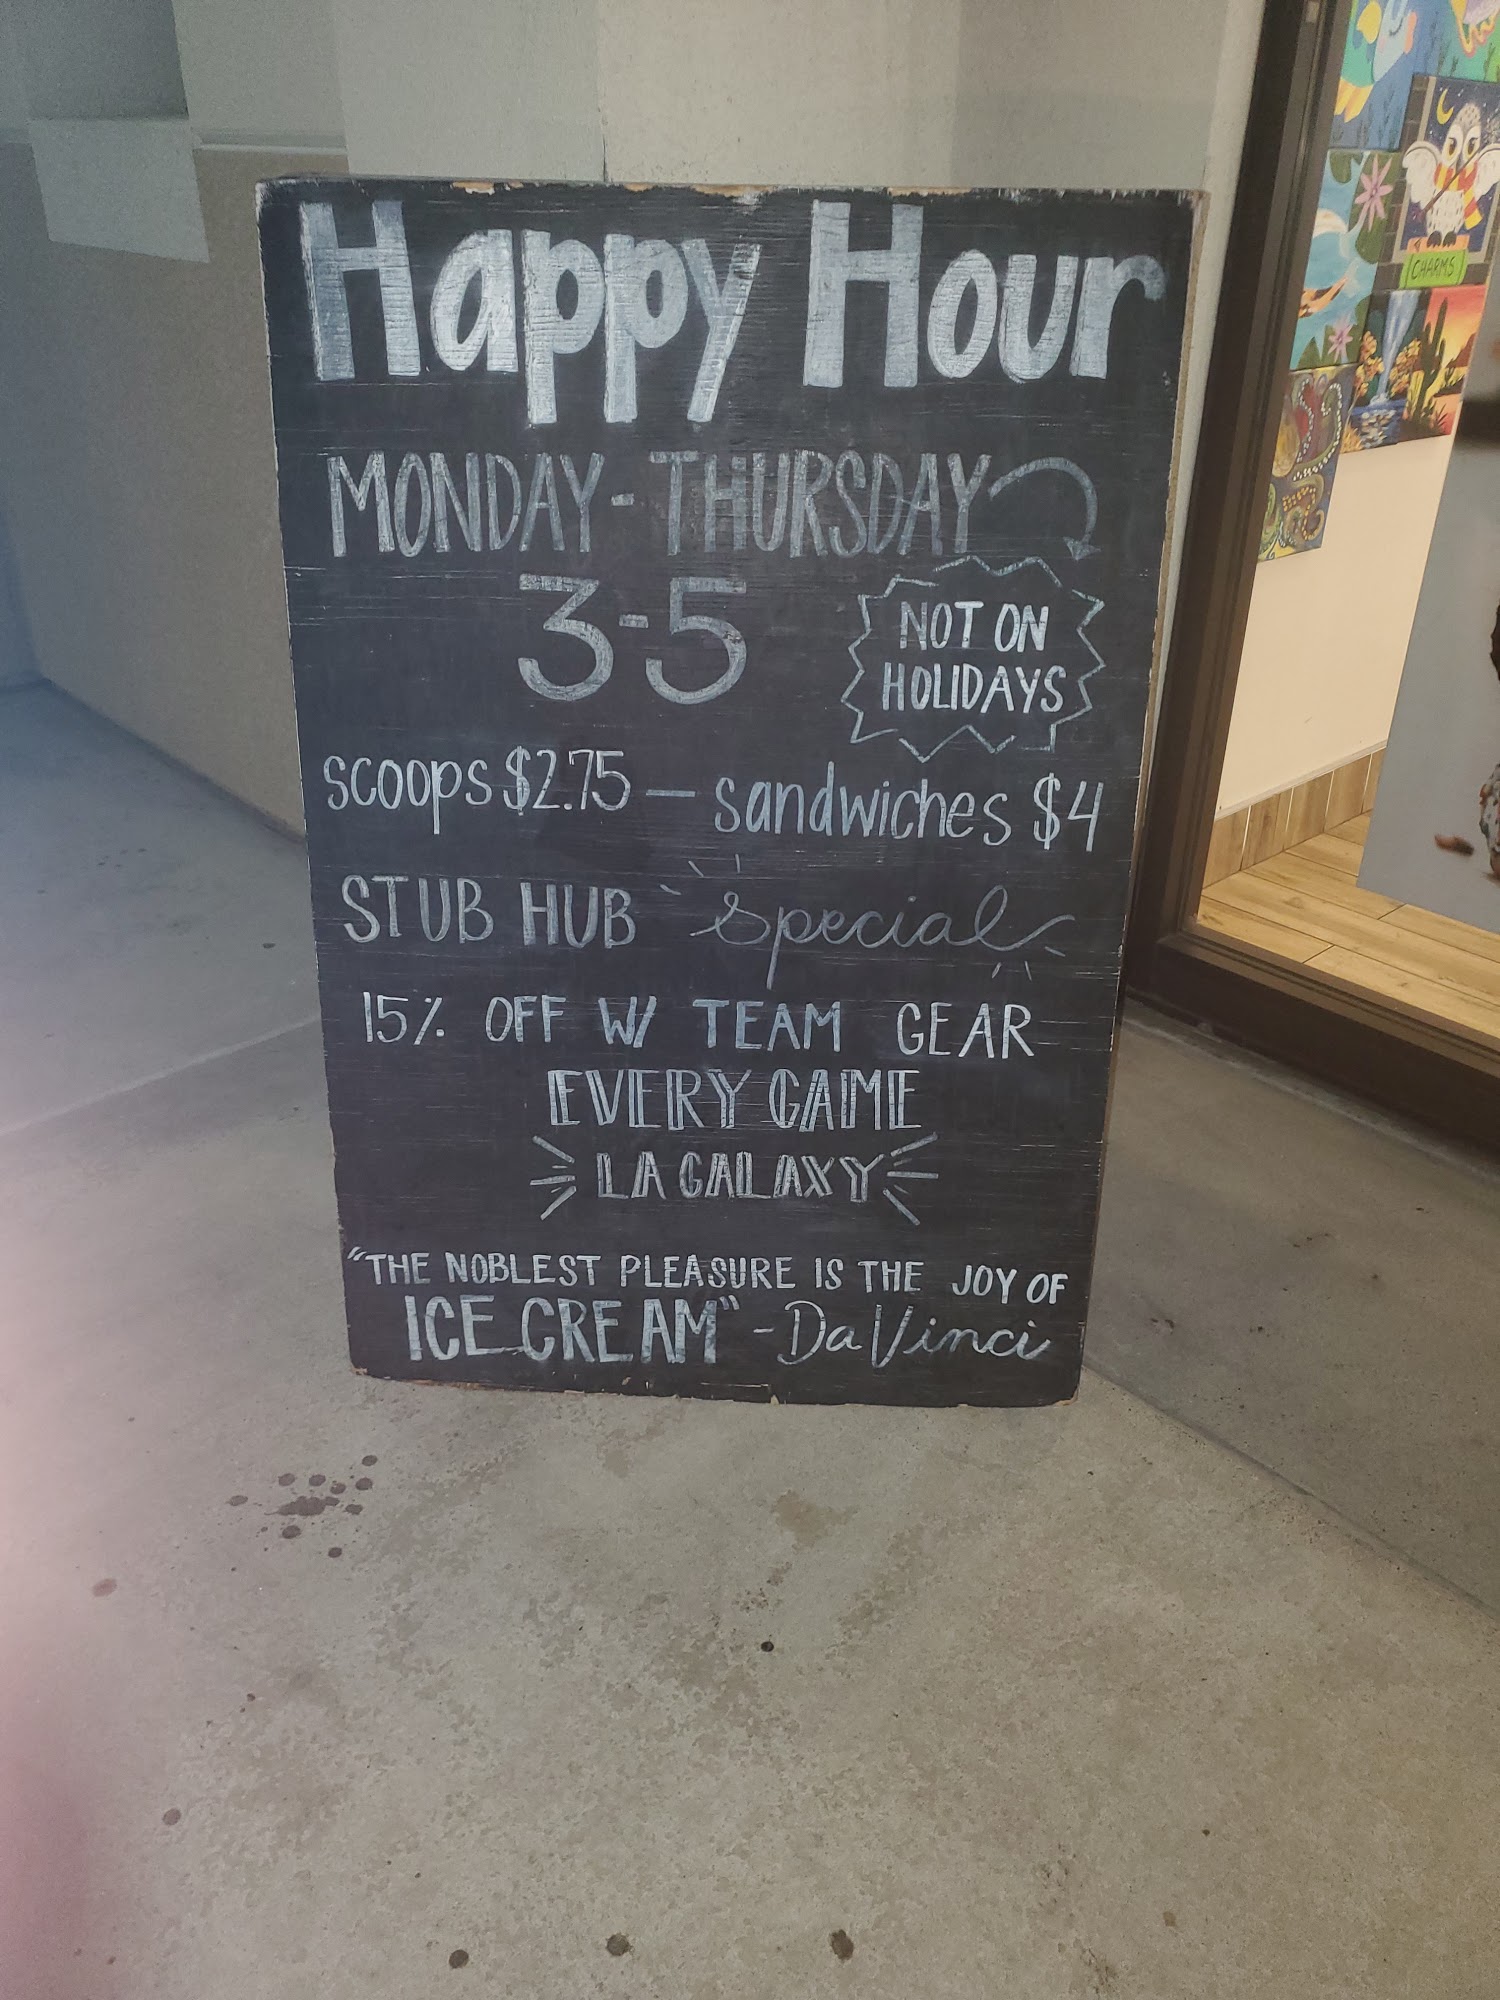 Happy Hour
MONDAY - THURSDAY
3-5
NOT ON
HOLIDAYS
scoops $2.75 — sandwiches $4
STUB HUB special
15% OFF W/ TEAM GEAR
EVERY GAME
LA GALAXY
"THE NOBLEST PLEASURE IS THE JOY OF
ICE CREAM" - Da Vinci
CHARMS